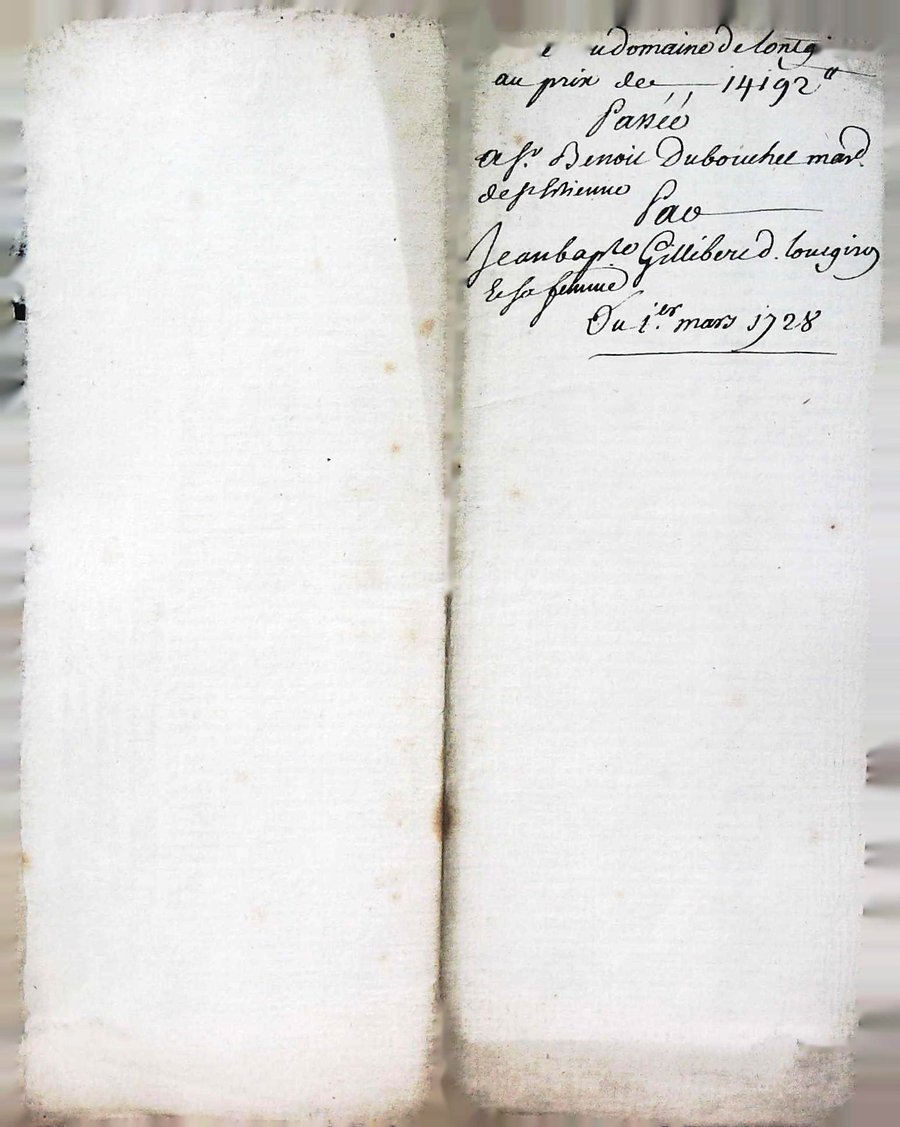 udomaine de
au prix de 14192 ᵗᵗ
Passéé
a Sr. Benoit Dubouchet marᵈ.
de St Estienne
Par
Jean bapte Gillibert d.
Et sa femme
Du 1.er mars 1728